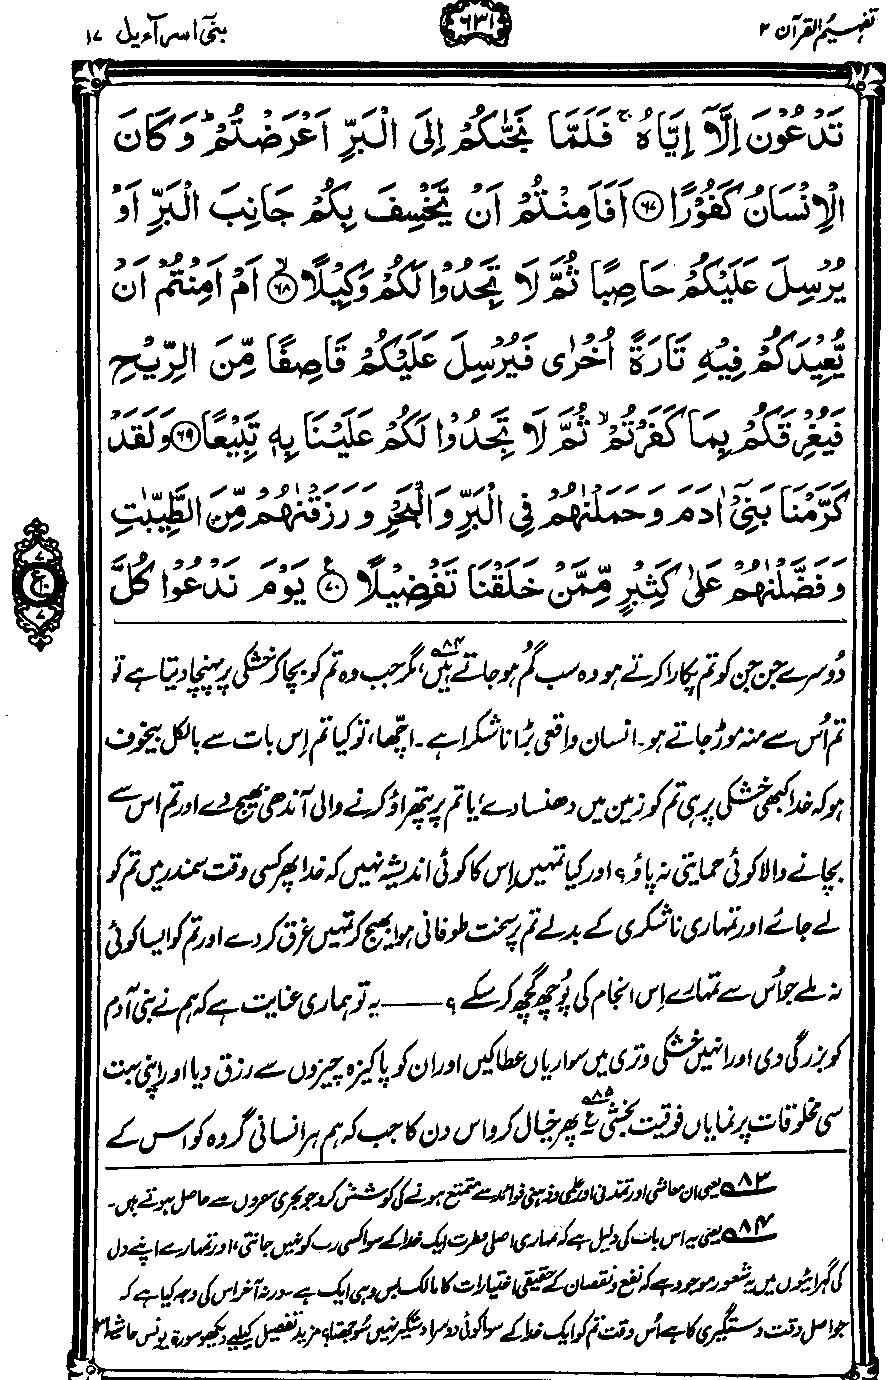 تفہیم القرآن ۲
۶۳۱
بنیٓ اسرآءیل ۱۷
تَدْعُوْنَ اِلَّاۤ اِیَّاهُ ۚ فَلَمَّا نَجّٰىكُمْ اِلَی الْبَرِّ اَعْرَضْتُمْ ؕ وَ كَانَ
الْاِنْسَانُ كَفُوْرًا ﴿۶۷﴾ اَفَاَمِنْتُمْ اَنْ یَّخْسِفَ بِكُمْ جَانِبَ الْبَرِّ اَوْ
یُرْسِلَ عَلَیْكُمْ حَاصِبًا ثُمَّ لَا تَجِدُوْا لَكُمْ وَكِیْلًا ﴿ۙ۶۸﴾ اَمْ اَمِنْتُمْ اَنْ
یُّعِیْدَكُمْ فِیْهِ تَارَةً اُخْرٰی فَیُرْسِلَ عَلَیْكُمْ قَاصِفًا مِّنَ الرِّیْحِ
فَیُغْرِقَكُمْ بِمَا كَفَرْتُمْ ۙ ثُمَّ لَا تَجِدُوْا لَكُمْ عَلَیْنَا بِهٖ تَبِیْعًا ﴿۶۹﴾ وَ لَقَدْ
كَرَّمْنَا بَنِیْۤ اٰدَمَ وَ حَمَلْنٰهُمْ فِی الْبَرِّ وَ الْبَحْرِ وَ رَزَقْنٰهُمْ مِّنَ الطَّیِّبٰتِ
وَ فَضَّلْنٰهُمْ عَلٰی كَثِیْرٍ مِّمَّنْ خَلَقْنَا تَفْضِیْلًا ﴿۷۰﴾ یَوْمَ نَدْعُوْا كُلَّ
۷
ع
۷
دُوسرے جن جن کو تم پکارا کرتے ہو وہ سب گُم ہو جاتے ہیں۸۴، مگر جب وہ تم کو بچا کر خشکی پر پہنچا دیتا ہے تو
تم اُس سے منہ موڑ جاتے ہو۔ انسان واقعی بڑا ناشکرا ہے۔ اچھا، تو کیا تم اِس بات سے بالکل بیخوف
ہو کہ خدا کبھی خشکی پر ہی تم کو زمین میں دھنسا دے، یا تم پر پتھراؤ کرنے والی آندھی بھیج دے اور تم اس سے
بچانے والا کوئی حمایتی نہ پاؤ؟ اور کیا تمہیں اِس کا کوئی اندیشہ نہیں کہ خدا پھر کسی وقت سمندر میں تم کو
لے جائے اور تمہاری ناشکری کے بدلے تم پر سخت طوفانی ہوا بھیج کر تمہیں غرق کر دے اور تم کو ایسا کوئی
نہ ملے جو اُس سے تمہارے اِس انجام کی پُوچھ گچھ کر سکے؟ ——— یہ تو ہماری عنایت ہے کہ ہم نے بنی آدم
کو بزرگی دی اور انہیں خشکی و تری میں سواریاں عطا کیں اور ان کو پاکیزہ چیزوں سے رزق دیا اور اپنی بہت
سی مخلوقات پر نمایاں فوقیت بخشی۸۵ ع پھر خیال کرو اس دن کا جب کہ ہم ہر انسانی گروہ کو اس کے
۸۳ یعنی ان معاشی اور تمدنی اور علمی و ذہنی فوائد سے متمتع ہونے کی کوشش کرو جو بحری سفروں سے حاصل ہوتے ہیں۔
۸۴ یعنی یہ اس بات کی دلیل ہے کہ تمہاری اصلی فطرت ایک خدا کے سوا کسی رب کو نہیں جانتی، اور تمہارے اپنے دل
کی گہرائیوں میں یہ شعور موجود ہے کہ نفع و نقصان کے حقیقی اختیارات کا مالک بس وہی ایک ہے۔ ورنہ آخر اس کی وجہ کیا ہے کہ
جو اصل وقت دستگیری کا ہے اُس وقت تم کو ایک خدا کے سوا کوئی دوسرا دستگیر نہیں سُوجھتا؟ مزید تفصیل کیلیے دیکھو سورۂ یونس حاشیہ